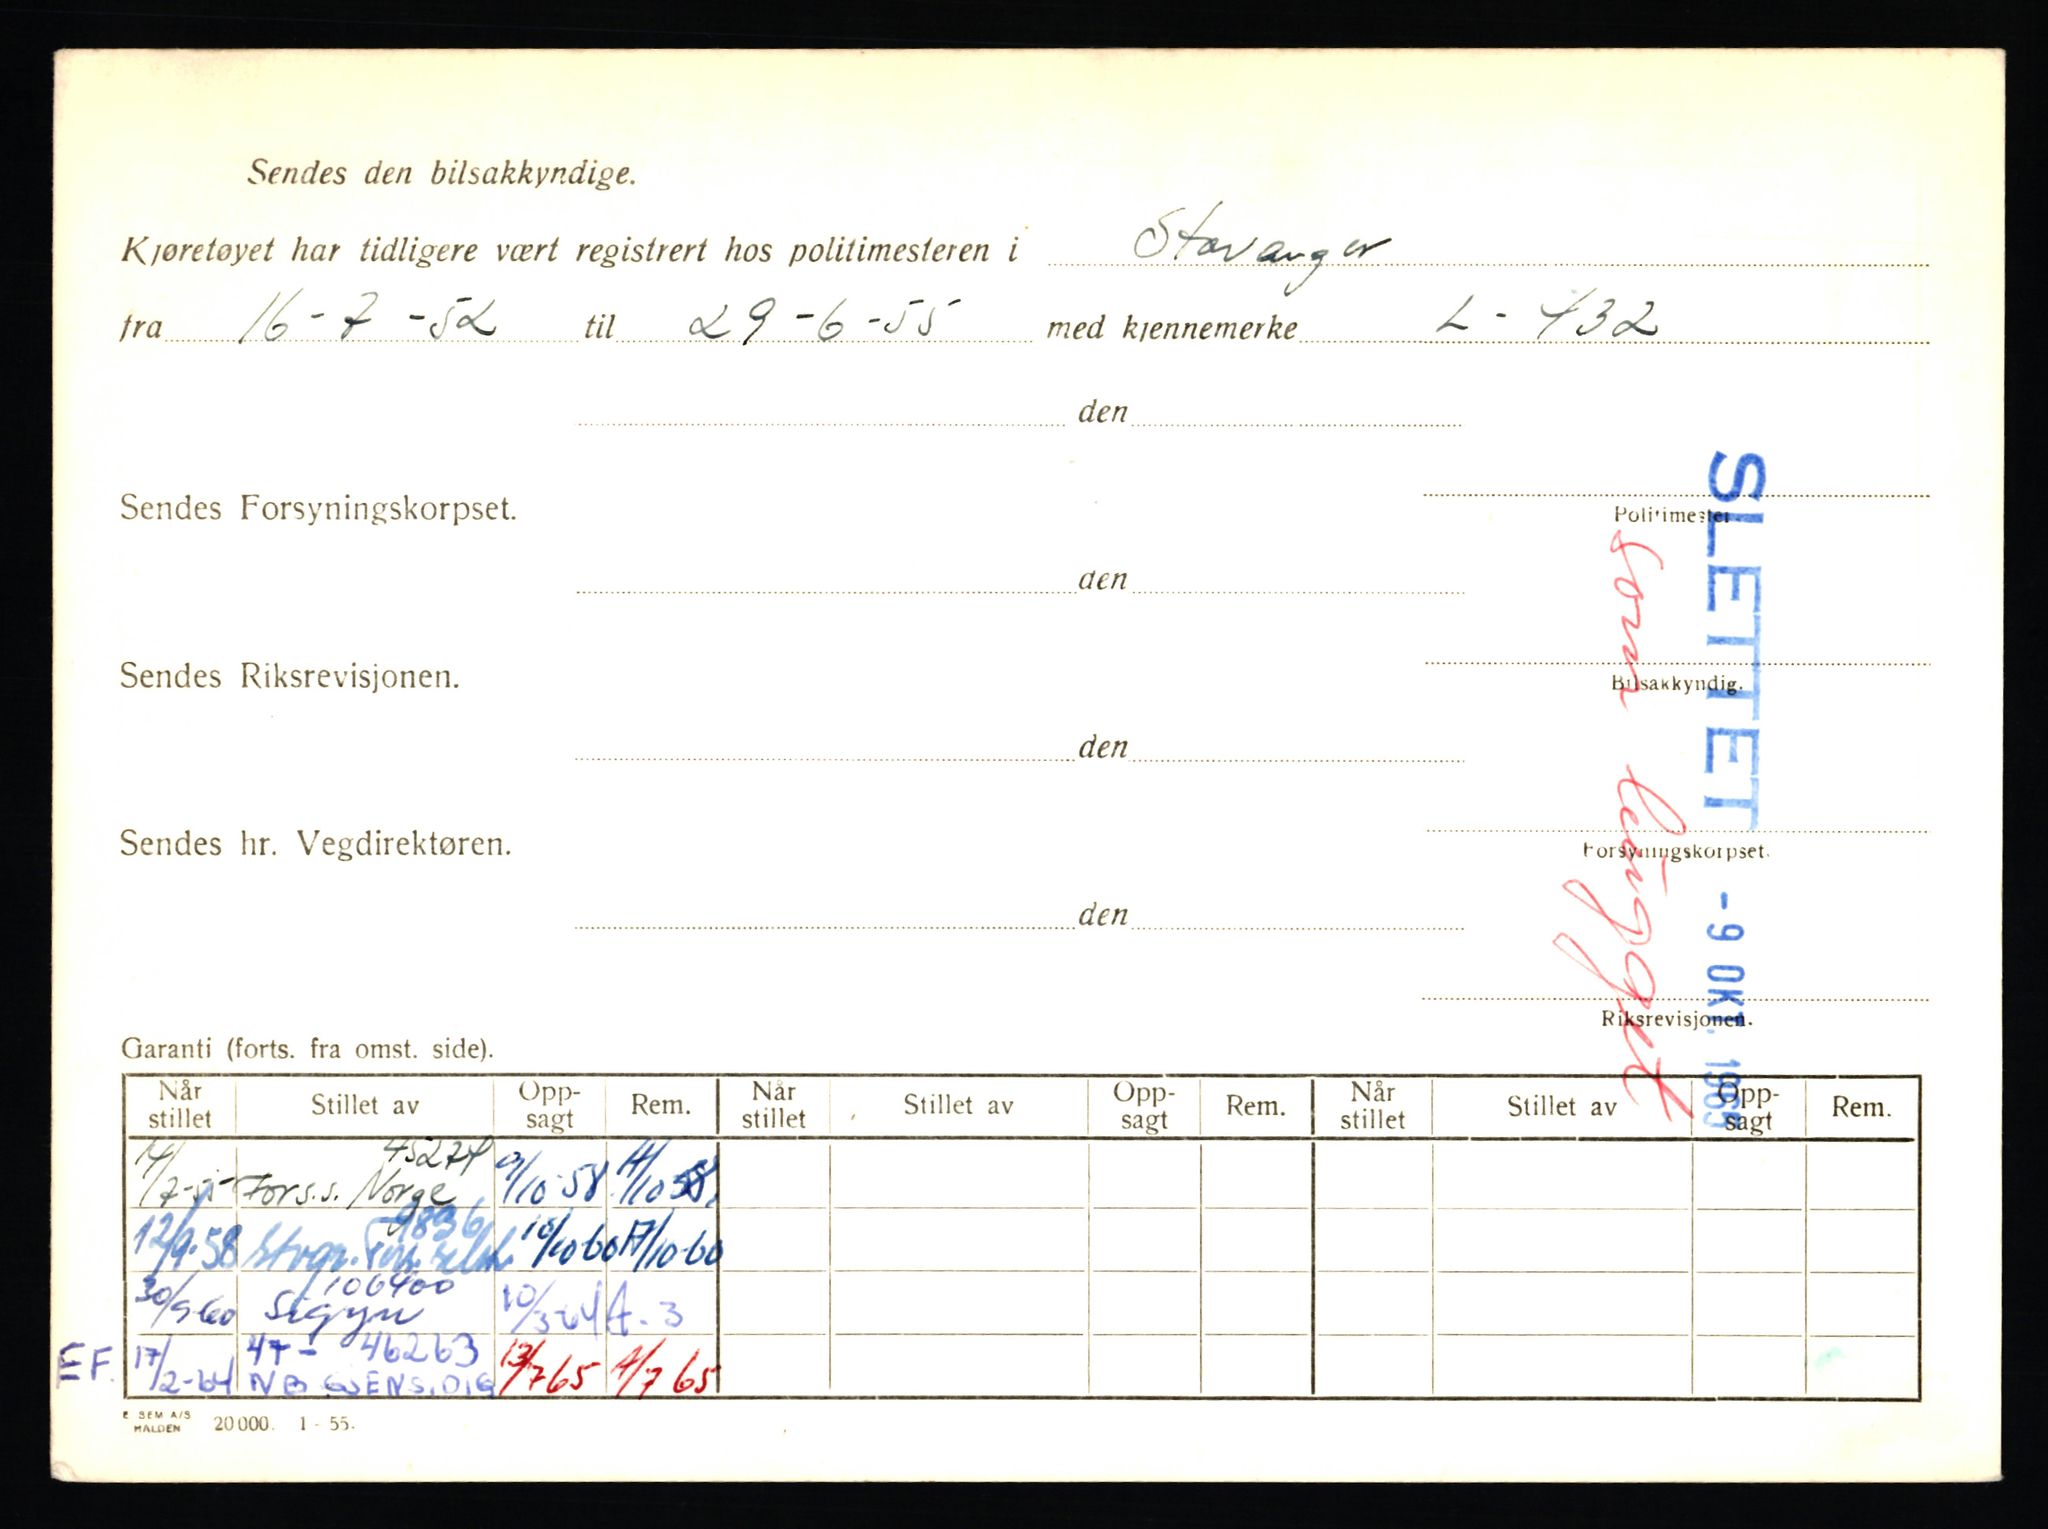 Sendes den bilsakkyndige.
Kjøretøyet har tidligere vært registrert hos politimesteren i Stavanger
fra 16-7-52 til 29-6-55 med kjennemerke L-432
den
Sendes Forsyningskorpset.
Politimester
den
Sendes Riksrevisjonen.
Bilsakkyndig.
den
Sendes hr. Vegdirektøren.
Forsyningskorpset.
den
Riksrevisjonen.
SLETTET -9 OKT. 1965
Garanti (forts. fra omst. side).
Når stillet Stillet av Opp-sagt Rem. Når stillet Stillet av Opp-sagt Rem. Når stillet Stillet av Opp-sagt Rem.
14/7-55 Fors.s. Norge 45274 9/10-58 14/10 58.
12/9-58 Stvgr. 9836 10/10-60 17/10-60
30/9-60 Sigyn 106400 10/3-64 A-3
EF. 17/2-64 47- 46263 13/7 65 /7 65
E. SEM A/S HALDEN 20000. 1 - 55.